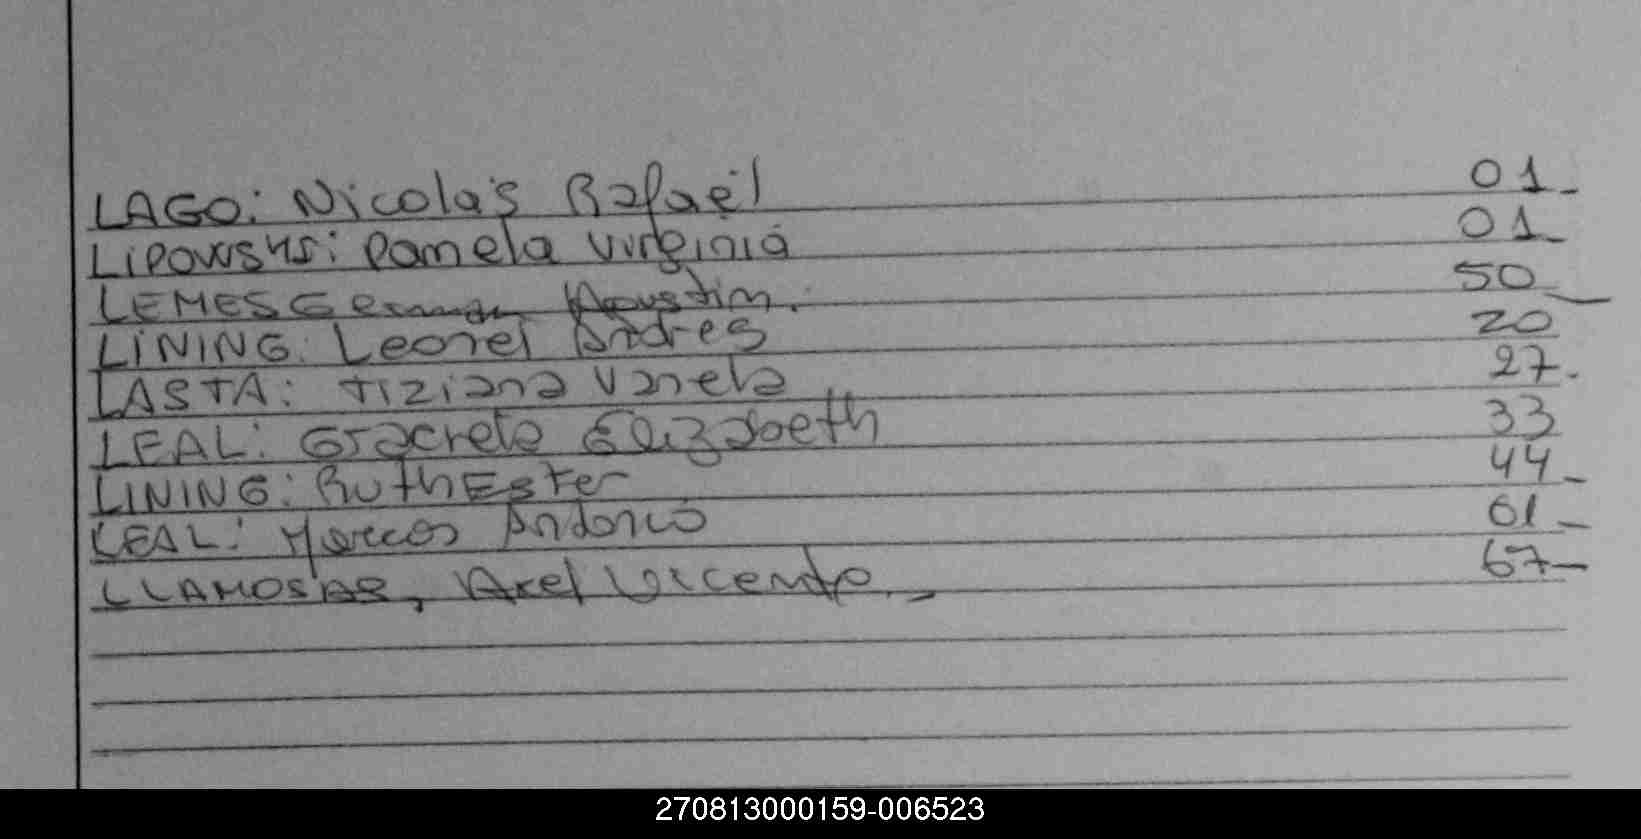 LAGO: Nicolás Rafaél 01_
LiPOWSKS: Pamela Virginia 01_
LEMES German Agustin. 50_
LiNING: Leonel Andres 20
LASTA: Tiziana Vanela 27.
LEAL: Graciela Elizabeth 33
LINING: Ruth Ester 44_
LEAL: Marcos Antonio 61_
LLAMOSAS, Axel Vicente._ 67_
270813000159-006523